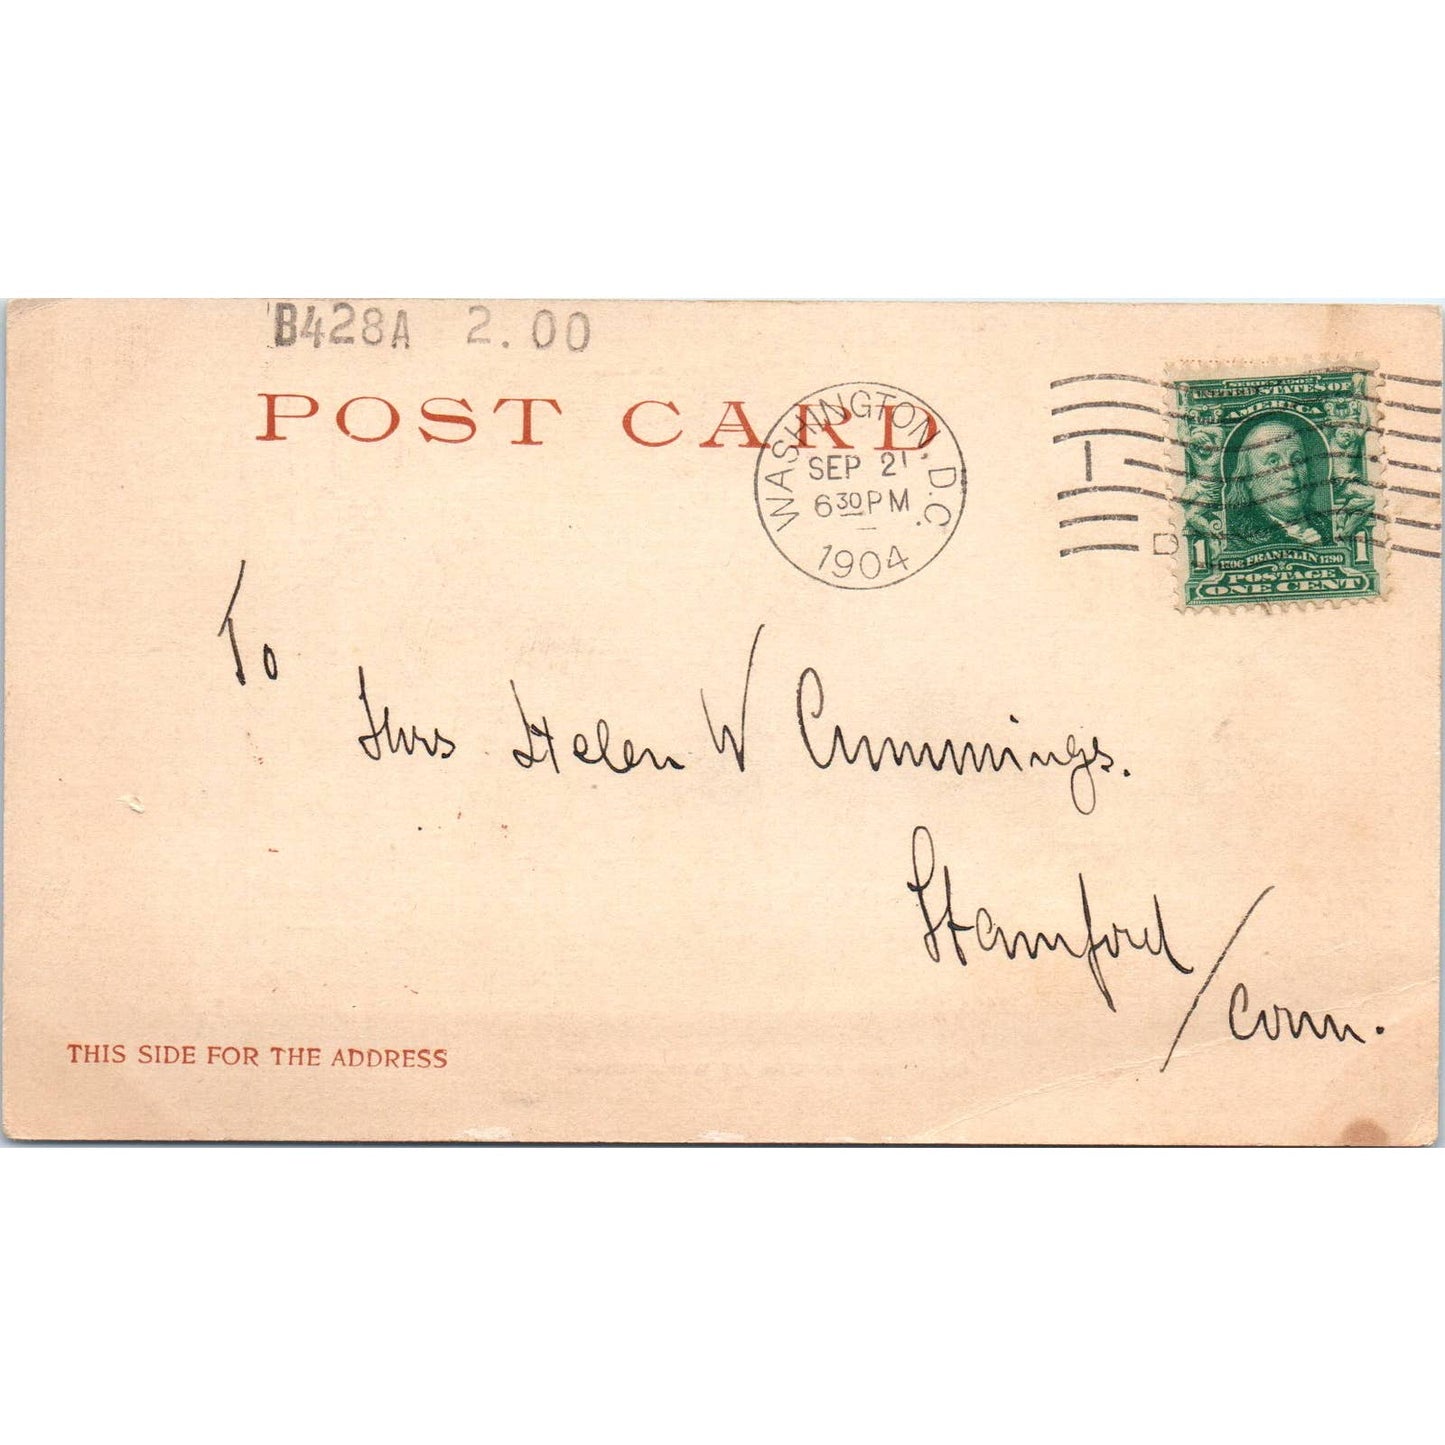 B428A 2.00
POST CARD
WASHINGTON, D.C.
SEP 21
6 30 PM
1904
1
SERIES 1902
UNITED STATES OF
AMERICA
1706 FRANKLIN 1790
1 POSTAGE 1
ONE CENT
To
Mrs Helen W Cummings.
Stamford
/ Conn.
THIS SIDE FOR THE ADDRESS